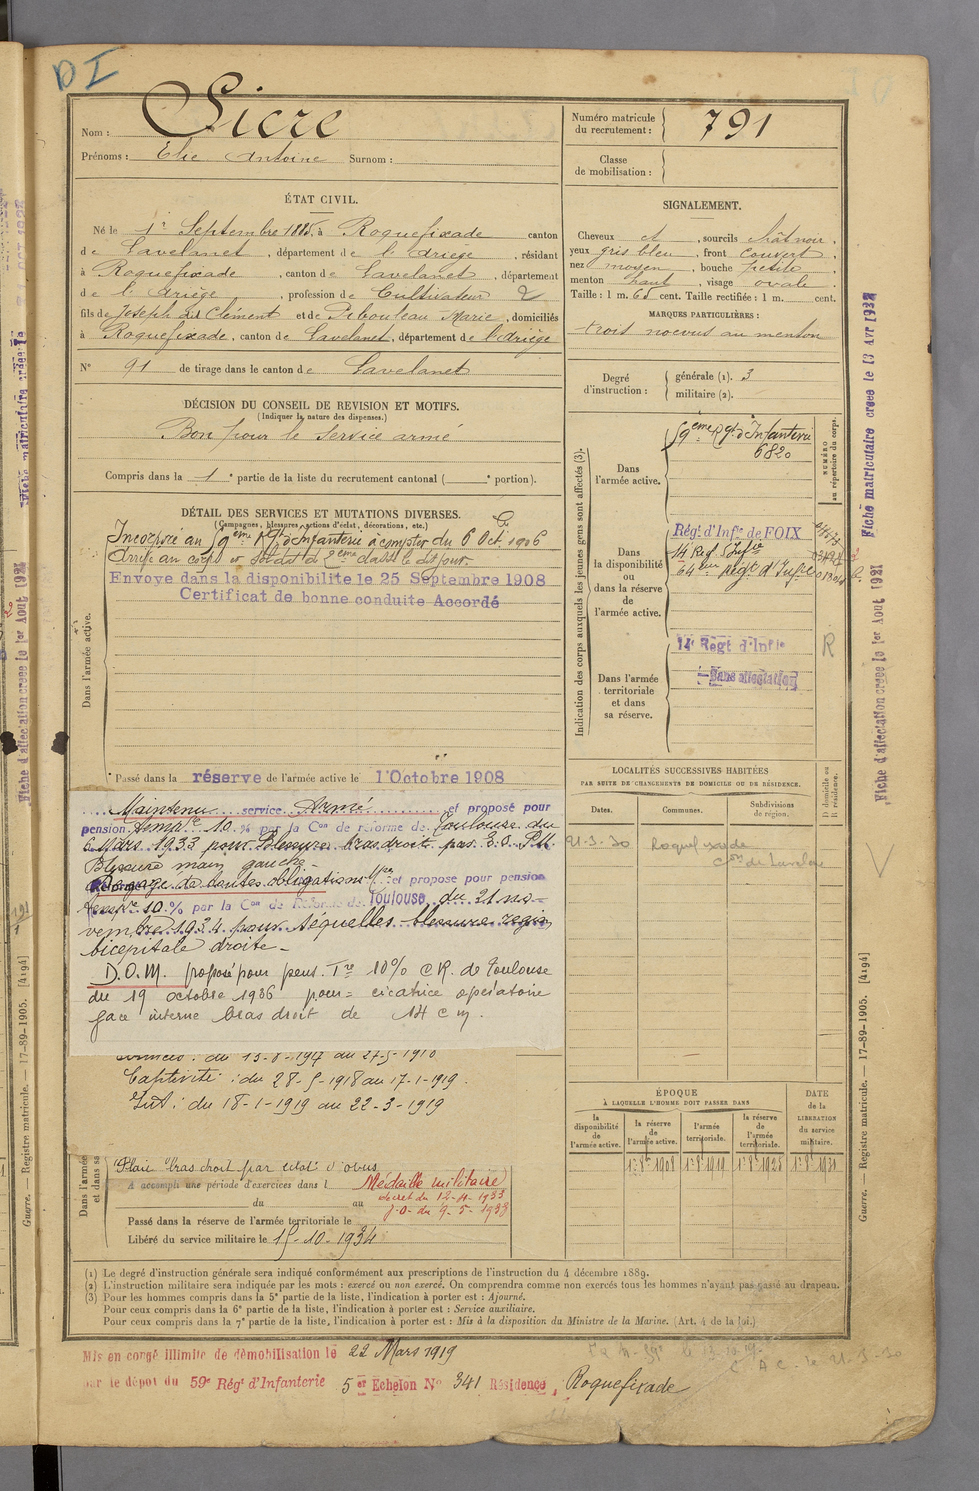 DI
Nom : Sicre
Prénoms : Elie Antoine Surnom :
Numéro matricule du recrutement : 791
Classe de mobilisation :
ÉTAT CIVIL.
Né le 1er Septembre 1885, à Roquefixade canton
de Lavelanet, département de l'Ariège, résidant
à Roquefixade, canton de Lavelanet, département
de l'Ariège, profession de Cultivateur
fils de Joseph dit Clément et de Pebouleau Marie, domiciliés
à Roquefixade, canton de Lavelanet, département de l'Ariège
N° 91 de tirage dans le canton de Lavelanet
SIGNALEMENT.
Cheveux et, sourcils chât noir,
yeux gris bleu, front couvert,
nez moyen, bouche petite,
menton haut, visage ovale.
Taille : 1 m. 63 cent. Taille rectifiée : 1 m. cent.
MARQUES PARTICULIÈRES :
trois noevus au menton
Degré d'instruction : générale (1). 3
militaire (2).
DÉCISION DU CONSEIL DE REVISION ET MOTIFS.
(Indiquer la nature des dispenses.)
Bon pour le service armé
Compris dans la 1e partie de la liste du recrutement cantonal ( e portion).
DÉTAIL DES SERVICES ET MUTATIONS DIVERSES.
(Campagnes, blessures, actions d'éclat, décorations, etc.)
Incorporé au 59eme Rgt d'Infanterie à compter du 6 Oct. 1906
Arrivé au corps et soldat de 2eme classe le dit jour.
Envoyé dans la disponibilité le 25 Septembre 1908
Certificat de bonne conduite Accordé
Dans l'armée active.
Passé dans la réserve de l'armée active le 1 Octobre 1908
Indication des corps auxquels les jeunes gens sont affectés (3).
NUMÉRO au répertoire du corps.
Dans l'armée active.
59eme Rgt d'Infanterie
6820
Dans la disponibilité ou dans la réserve de l'armée active.
Régt d'Infie de FOIX
14 Reg d'Infie
64eme Régt d'Infie
Dans l'armée territoriale et dans sa réserve.
14e Regt d'Infie
Sans affectation
R
Maintenu service Armé et proposé pour
pension temp 10 % par la Con de réforme de Toulouse du
6 Mars 1933 pour Blessure bras droit par E.O.
Blessure main gauche -
Dégagé de toutes obligations Mres et proposé pour pension
tempre 10 % par la Con de Réforme de Toulouse du 21 no-
vembre 1934 pour séquelles blessure région
bicipitale droite -
D.O.M. proposé pour pens. Tre 10% CR. de Toulouse
du 19 octobre 1936 pour = cicatrice opératoire
face interne bras droit de 14 cm.
du 13-8-1917 au 27-5-1918
Captivité : du 28-5-1918 au 17-1-1919.
Int : du 18-1-1919 au 22-3-1919
Plaie bras droit par éclat d'obus
A accompli une période d'exercices dans l
du au
Médaille militaire
décret du 12-4-1933
J.O. du 9-5-1933
Passé dans la réserve de l'armée territoriale le
Libéré du service militaire le 15-10-1934
Dans l'armée et dans sa
LOCALITÉS SUCCESSIVES HABITÉES
PAR SUITE DE CHANGEMENTS DE DOMICILE OU DE RÉSIDENCE.
Dates. Communes. Subdivisions de région.
D domicile ou R résidence.
21-3-30 Roquefixade
Con de Lavelanet
ÉPOQUE
À LAQUELLE L'HOMME DOIT PASSER DANS
la disponibilité de l'armée active.
la réserve de l'armée active.
l'armée territoriale.
la réserve de l'armée territoriale.
DATE de la LIBÉRATION du service militaire.
(1) Le degré d'instruction générale sera indiqué conformément aux prescriptions de l'instruction du 4 décembre 1889.
(2) L'instruction militaire sera indiquée par les mots : exercé ou non exercé. On comprendra comme non exercés tous les hommes n'ayant pas passé au drapeau.
(3) Pour les hommes compris dans la 5e partie de la liste, l'indication à porter est : Ajourné.
Pour ceux compris dans la 6e partie de la liste, l'indication à porter est : Service auxiliaire.
Pour ceux compris dans la 7e partie de la liste, l'indication à porter est : Mis à la disposition du Ministre de la Marine. (Art. 4 de la loi.)
Mis en congé illimité de démobilisation le 22 Mars 1919
par le dépôt du 59e Régt d'Infanterie 5er Echelon N° 341 Résidence, Roquefixade
Fiche matriculaire créée le 13 Avr 1932
Fiche d'affectation créée le 1er Août 1921
Guerre. — Registre matricule. — 17-89-1905. [4194]
Guerre. — Registre matricule. — 17-89-1905. [4194]
Fiche d'affectation créée le 1er Août 1921